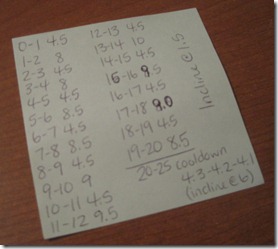 0-1 4.5
1-2 8
2-3 4.5
3-4 8
4-5 4.5
5-6 8.5
6-7 4.5
7-8 8.5
8-9 4.5
9-10 9
10-11 4.5
11-12 9.5
12-13 4.5
13-14 10
14-15 4.5
15-16 9.5
16-17 4.5
17-18 9.0
18-19 4.5
19-20 8.5
20-25 cooldown
4.3-4.2-4.1
(incline @ 6)
Incline @ 1.5